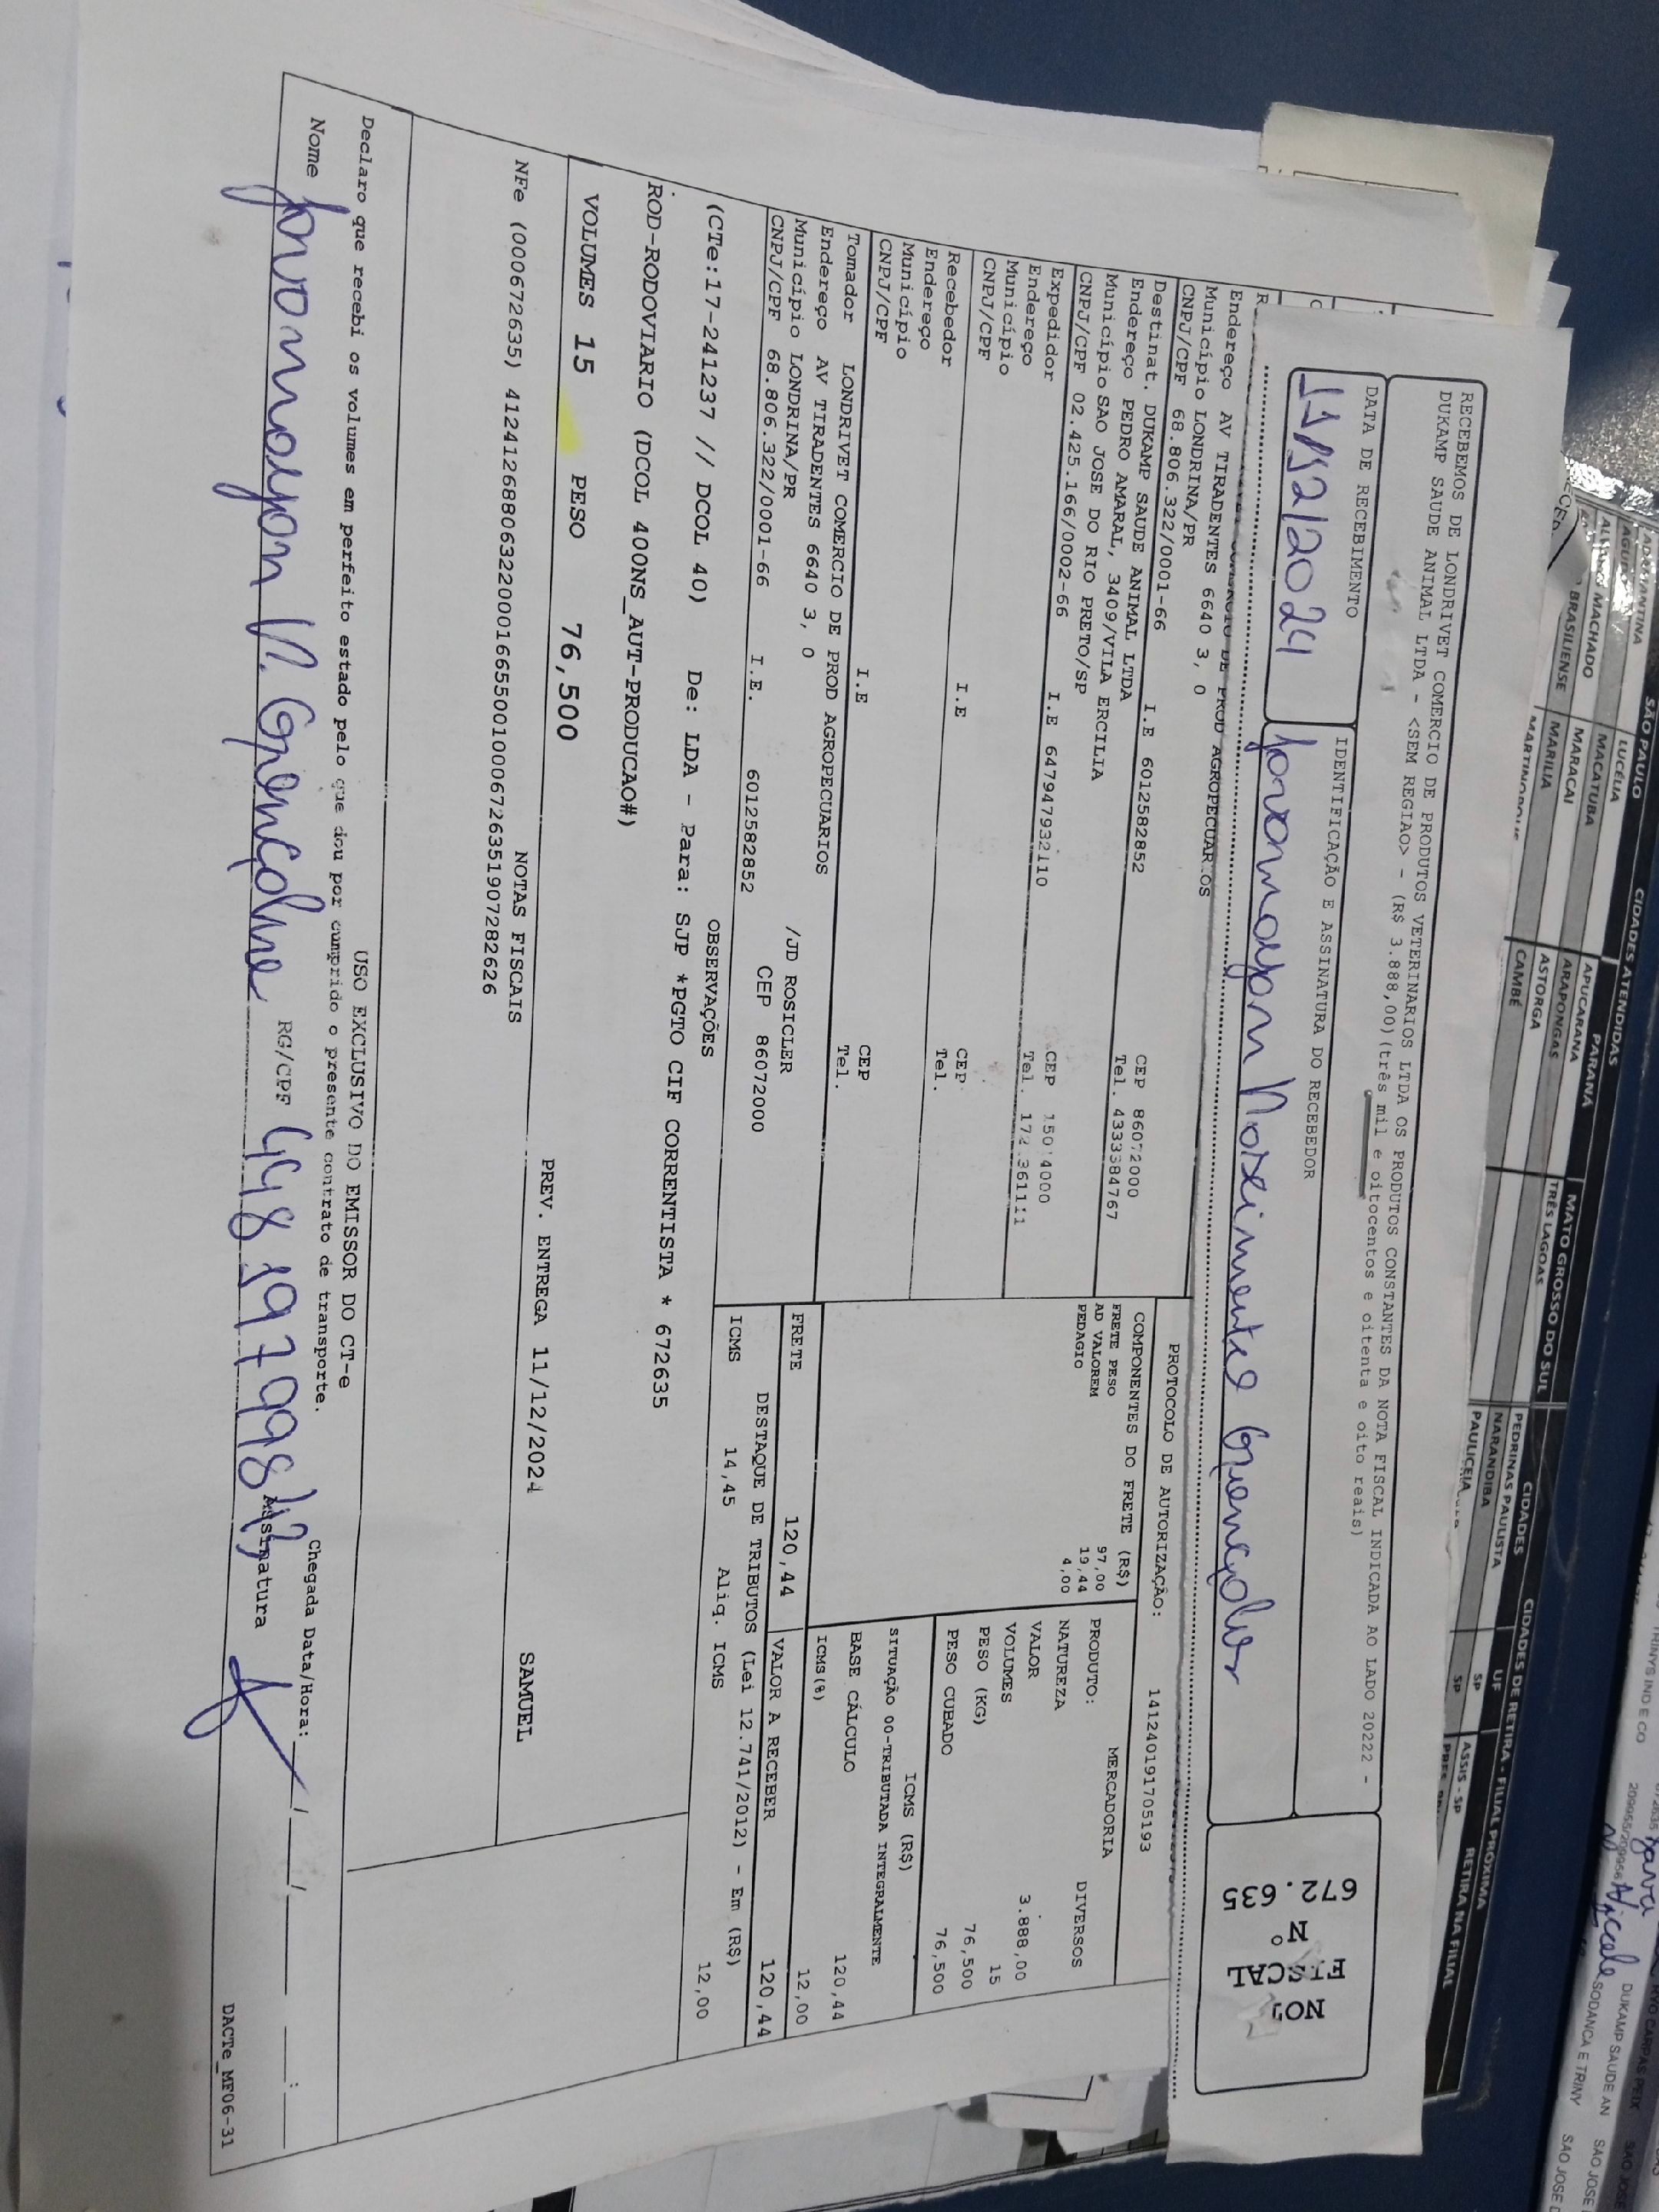 RECEBEMOS DE LONDRIVET COMERCIO DE PRODUTOS VETERINARIOS LTDA OS PRODUTOS CONSTANTES DA NOTA FISCAL INDICADA AO LADO 20222 -
DUKAMP SAUDE ANIMAL LTDA - <SEM REGIAO> - (R$ 3.888,00)(três mil e oitocentos e oitenta e oito reais)
DATA DE RECEBIMENTO
IDENTIFICAÇÃO E ASSINATURA DO RECEBEDOR
11/12/2024
FISCAL
Nº
672.635
PROD AGROPECUARIOS
Endereço AV TIRADENTES 6640 3, 0
Município LONDRINA/PR
CNPJ/CPF 68.806.322/0001-66 I.E 6012582852
CEP 86072000
Tel. 4333384767
Destinat. DUKAMP SAUDE ANIMAL LTDA
Endereço PEDRO AMARAL, 3409/VILA ERCILIA
Município SAO JOSE DO RIO PRETO/SP
CNPJ/CPF 02.425.166/0002-66 I.E 647947932110
Expedidor
Endereço
Município
CNPJ/CPF I.E
CEP
Tel.
Recebedor
Endereço
Município
CNPJ/CPF I.E
CEP
Tel.
Tomador LONDRIVET COMERCIO DE PROD AGROPECUARIOS
Endereço AV TIRADENTES 6640 3, 0 /JD ROSICLER
Município LONDRINA/PR
CNPJ/CPF 68.806.322/0001-66 I.E. 6012582852 CEP 86072000
PROTOCOLO DE AUTORIZAÇÃO: 141240191705193
COMPONENTES DO FRETE (R$)
FRETE PESO 97,00
AD VALOREM 19,44
PEDAGIO 4,00
MERCADORIA
PRODUTO: DIVERSOS
NATUREZA
VALOR 3.888,00
VOLUMES 15
PESO (KG) 76,500
PESO CUBADO 76,500
ICMS (R$)
SITUAÇÃO 00-TRIBUTADA INTEGRALMENTE
BASE CÁLCULO 120,44
ICMS(%) 12,00
FRETE 120,44
VALOR A RECEBER 120,44
DESTAQUE DE TRIBUTOS (Lei 12.741/2012) - Em (R$)
ICMS 14,45 Aliq. ICMS 12,00
OBSERVAÇÕES
(CTe:17-241237 // DCOL 40) De: LDA - Para: SJP *PGTO CIF CORRENTISTA * 672635
ROD-RODOVIARIO (DCOL 400NS_AUT-PRODUCAO#)
VOLUMES 15 PESO 76,500
PREV. ENTREGA 11/12/2024 SAMUEL
NOTAS FISCAIS
NFe (000672635) 41241268806322000166550010006726351907282626
USO EXCLUSIVO DO EMISSOR DO CT-e
Declaro que recebi os volumes em perfeito estado pelo que dou por cumprido o presente contrato de transporte.
Chegada Data/Hora: ___/___/___ __:__
Nome
RG/CPF
Assinatura
DACTe_MF06-31
SÃO PAULO
CIDADES ATENDIDAS
PARANÁ
MATO GROSSO DO SUL
LUCÉLIA
MACATUBA
MARACAI
MARILIA
MACHADO
BRASILIENSE
APUCARANA
ARAPONGAS
ASTORGA
CAMBÉ
TRÊS LAGOAS
CIDADES DE RETIRA - FILIAL PRÓXIMA
CIDADES
UF
RETIRA NA FILIAL
PEDRINAS PAULISTA
SP
ASSIS - SP
NARANDIBA
SP
PAULICEIA
DUKAMP SAUDE AN
SODANCA E TRINY
SAO JOSE